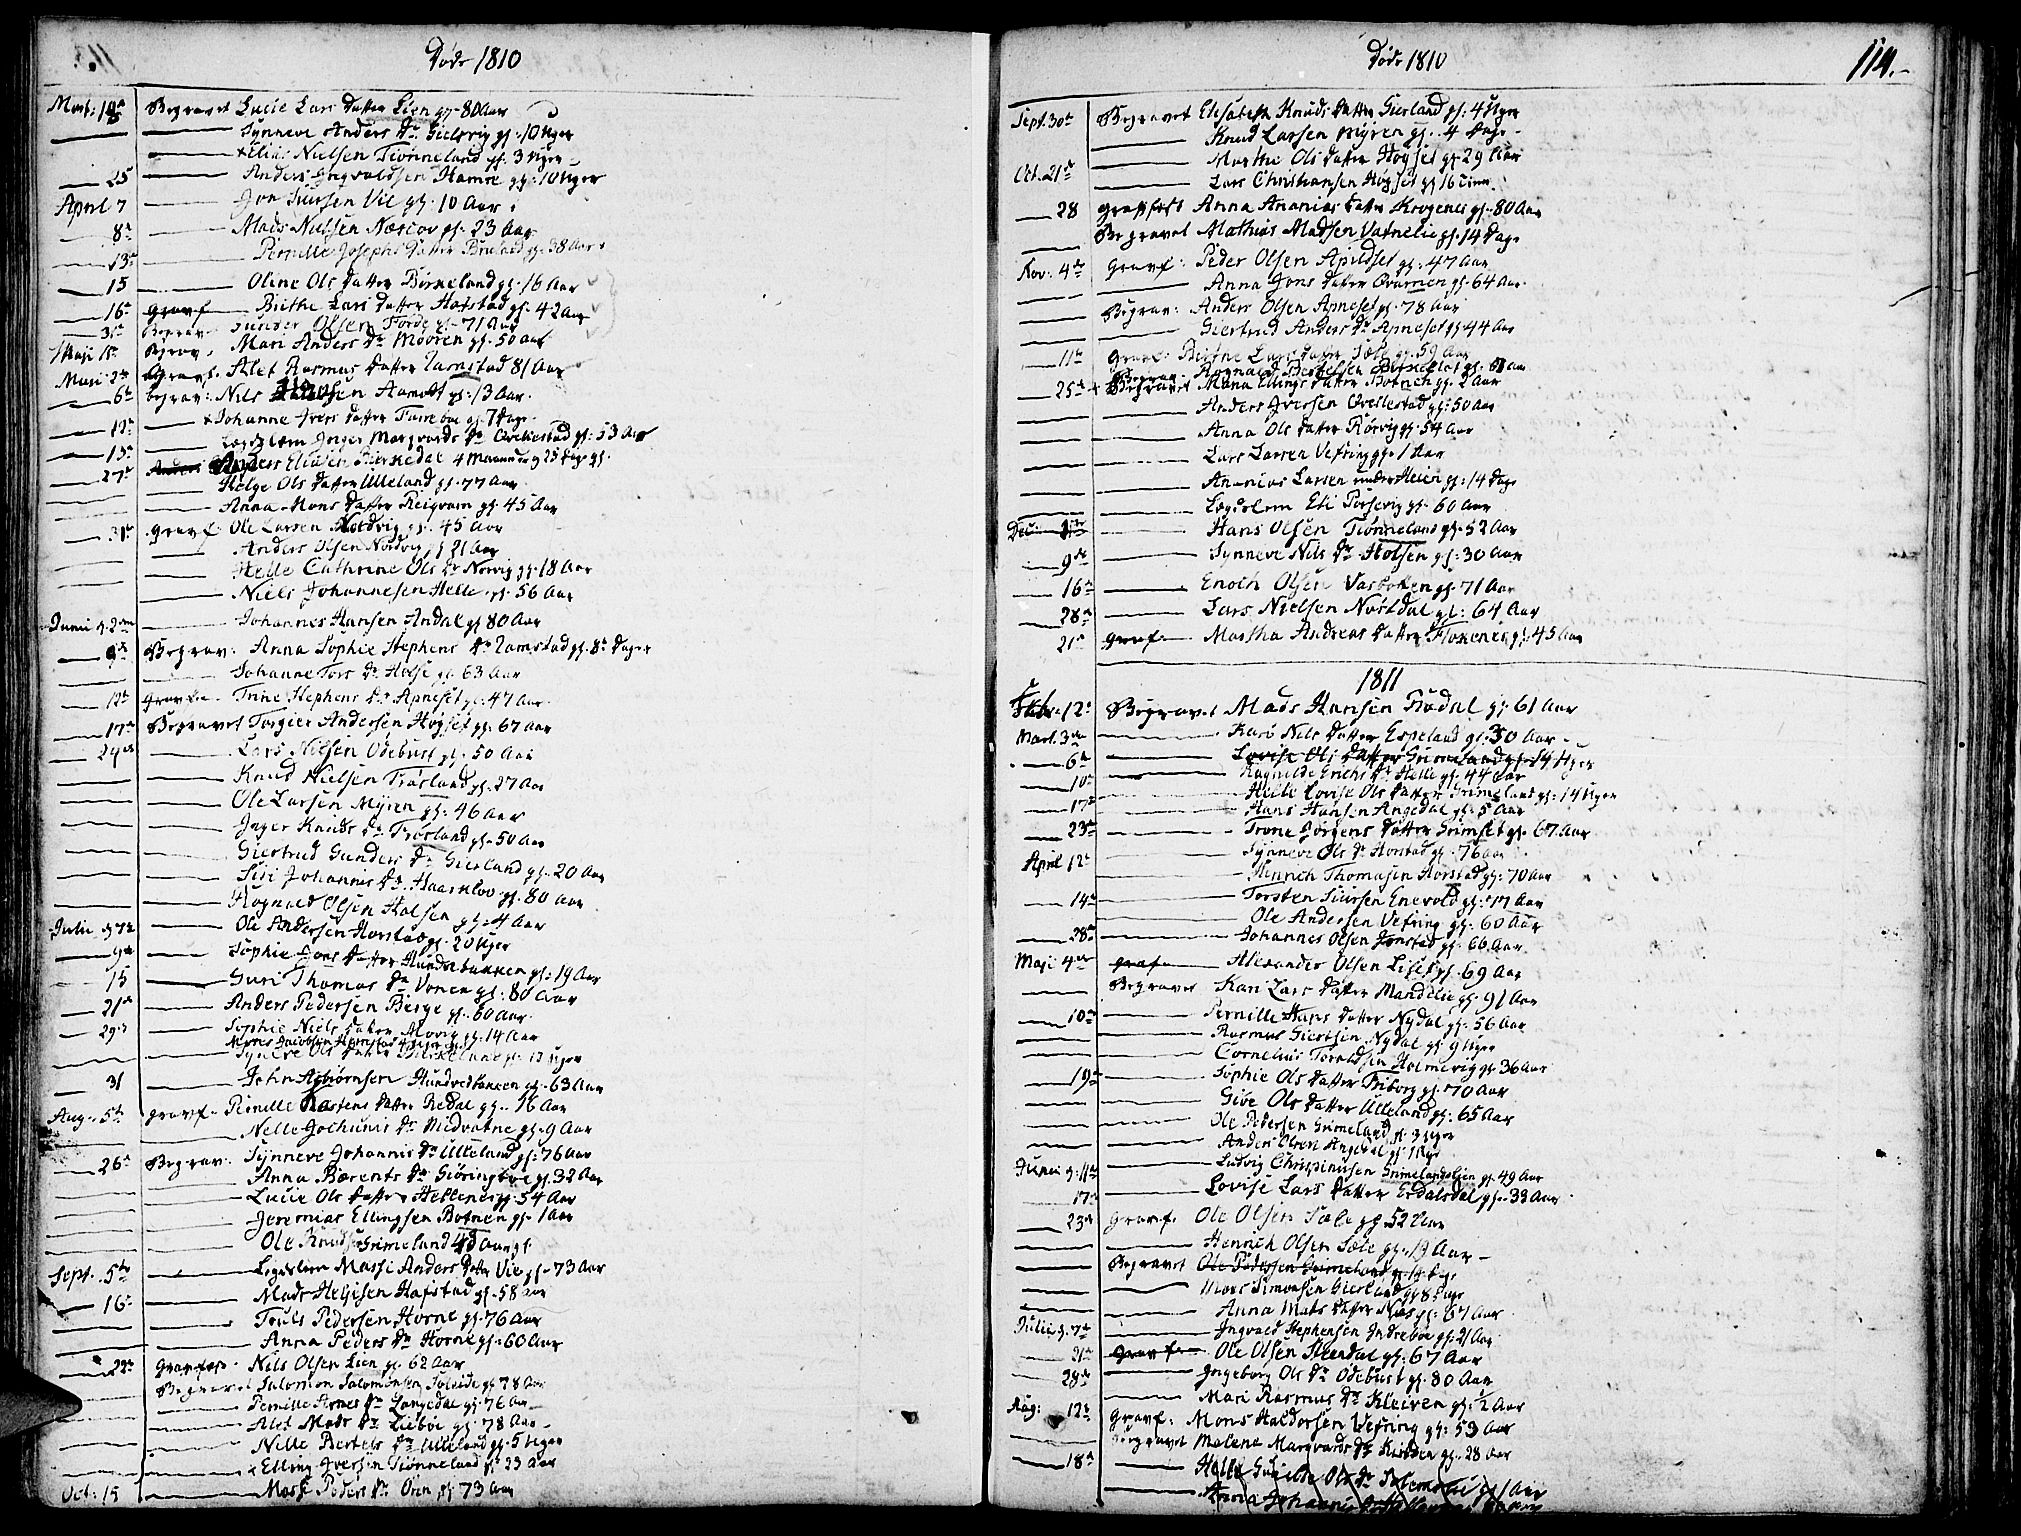 Døde 1810
Begravet Lucie Lars Datter Lien gl. 80 Aar
Synneve Anders Dr. Gielsvig gl. 10 Uger
Elias Nielsen Tiønneland gl. 3 Uger
25 Anders Ingvaldsen Hamre gl. 10 Uger
April 7 Jon Siursen Vie gl. 10 Aar
8de Mads Nielsen Næscov gl. 23 Aar
13de Pernille Josephs Datter gl. 38 Aar
15 Oline Ols Datter Birkeland gl. 16 Aar
16de Gravf. Birthe Lars Datter Hafstad gl. 42 Aar
Begrav. Gunder Olsen Førde gl. 71 Aar
Begrav. Mari Anders Dr. Mooren gl. 50 Aar
Maji 2de Gravf. Alet Rasmus Datter Ramstad 81 Aar
6te Begrav: Nils Hansen gl. 13 Aar
Johanne Ivers Datter gl. 7 Dage
Lægdslem Inger Margvards Dr. Qvellestad gl. 53 Aar
27de Anders Eliasen Birkedal 4 Maaneder og 25 Dage gl.
Helge Ols Datter Ulleland gl. 77 Aar
Anna Mons Datter Reigvam gl. 45 Aar
31te Gravf. Ole Larsen Nordvig gl. 45 Aar
Anders Olsen Norvig gl 21 Aar
Helle Cathrine Ols Dr. Norvig gl. 18 Aar
Niels Johannesen Helle gl. 56 Aar
Junii d. 2den Johannes Hansen Andal gl 80 Aar
Begrav: Anna Sophie Stephens Dr. Ramstad gl. 8te Dager
Johanne Tors Dr. Holse gl. 63 Aar
Trine Stephens Dr. Apneset gl. 47 Aar
17de Begravet Torgier Andersen Høyset gl. 67 Aar
Lars Nilsen Odebust gl. 50 Aar
Knud Nielsen Trøsland gl. 27 Aar
Ole Larsen Myren gl. 46 Aar
Inger Knuds Dr. Trøsland gl. 50 Aar
Giertrud Gunders Dr. Gierland gl. 20 Aar
Siri Johannis Dr. Haasklov gl. 80 Aar
Rognald Olsen Holsen gl. 4 Aar
Julii d. 7de Ole Andersen Horstad gl. 20 Uger
9de Sophie Jons Datter Hundsebakken gl. 19 Aar
15 Guri Thomas Dr. Vonen gl. 80 Aar
21de Anders Pedersen Berge gl. 60 Aar
29de Sophie Niels Datter Alovig gl. 14 Aar
Synneve Ols Datter Birkeland gl. 12 Uger
31 John Asbiørnsen Hundvedbakken gl. 63 Aar
Aug. 5te Gravf. Pernille Karstens Datter Redal gl. 16 Aar
Nelle Jochums Dr. Midvatne gl. 9 Aar
26de Begrav. Synneve Johannis Dr. Ulleland gl. 76 Aar
Anna Bærents Dr. Giøringboe gl. 32 Aar
Lucie Ols Datter Hellenes gl. 54 Aar
Jeremias Ellingsen Botnen gl. 1 Aar
Ole Knudsen Grimeland 40 Aar gl.
Sept. 5te Legdslem Massi Anders Datter Vie gl. 73 Aar
16de Mads Helgesen Hafstad gl. 58 Aar
Truls Pedersen Horne gl. 76 Aar
Anna Peders Dr. Horne gl. 60 Aar
22de Gravfæst Nils Olsen Lien gl. 62 Aar
Begravet Salomon Salomonsen Soleide gl. 78 Aar
Pernille Arnes Dr. Langedal gl. 76 Aar
Alet Mads Dr. Liebøe gl. 78 Aar
Nille Bertels Dr. Ulleland gl. 5 Uger
Elling Iversen Tiønneland gl. 23 Aar
Oct: 15 Massi Peders Dr. Øren gl. 73 Aar
Døde 1810
114.
Sept. 30te Begravet Elisabeth Knuds Datter Gierland gl. 4 Uger
Knud Larsen Myren gl. 4 Dage
Oct. 21de Marthe Ols Datter Høyset gl. 29 Aar
Lars Christiansen Høyset gl. 16
28 Gravfest Anna Ananias Datter Krogenes gl. 80 Aar
Begravet Mathias Madsen Vatnelie gl. 14 Dage
Nov. 4de Gravf: Peder Olsen Apildset gl. 47 Aar
Anna Jons Datter Qvamen gl. 64 Aar
Begrav: Anders Olsen Apneset gl. 78 Aar
Giertrud Anders Dr. Apneset gl. 44 Aar
11te Gravf: Birthe Lars Datter Sæle gl. 59 Aar
Begrav. Rognald Bertelsen
25de Begravet Mana Ellings Datter Botnen gl. 2 Aar
Anders Iversen Qvellestad gl. 50 Aar
Anna Ols Datter Rørvig gl. 54 Aar
Lars Larsen Vefring gl. 1 Aar
Ananias Larsen under Heien gl. 14 Dage
Lægdslem Eli Torsevig gl. 60 Aar
Hans Olsen Tiønneland gl. 52 Aar
9de Synneve Nils Dr. Holsen gl. 30 Aar
16de Enoch Olsen Vasbotten gl. 71 Aar
28de Lars Nielsen Nøstdal gl. 64 Aar
21de Gravf. Martha Andreas Datter Florenes gl. 45 Aar
1811
12te Begravet Mads Hansen Rødal gl. 61 Aar
Mart. 3die Karø Nils Datter Espeland gl. 30 Aar
6te Lovise Ols Datter Grimeland gl. 14 Uger
10de Ragnilde Erichs Dr. Helle gl. 44 Aar
Helle Lovise Ols Datter Grimeland gl. 14 Uger
17de Hans Hansen Angedal gl. 5 Aar
23de Trone Jørgens Datter Grimset gl. 67 Aar
April 12te Synneve Ols Dr. Horstad gl. 76 Aar
Henrich Thomasen Horstad gl. 70 Aar
14de Torsten Siursen Enevold gl. 77 Aar
Ole Andersen Vefring gl. 60 Aar
28de Johannes Olsen Jonstad gl. 66 Aar
Maji 4de Gravf. Alexander Olsen Liset gl. 69 Aar
Begravet Kari Lars Datter Mandelie gl. 91 Aar
10de Pernille Hans Datter Nydal gl. 56 Aar
Rasmus Giertsen Nydal gl. 9 Uger
Cornelius Toraldsen Holmevig gl. 36 Aar
19de Sophie Ols Datter Friborg gl. 70 Aar
Give Ols Datter Ulleland gl. 65 Aar
Ole Pedersen Grimeland gl. 3 Uger
Anders Olsen Angedal gl. 1 Uge
Junii d. 11te Ludvig Christiansen Grimelandslien gl. 49 Aar
17de Lovise Lars Datter Erdalsdal gl. 33 Aar
23de Gravf. Ole Olsen Sæle gl. 52 Aar
Henrich Olsen Sæle gl. 19 Aar
Begravet Ole Pedersen Grimeland gl. 14 Dage
Mons Simonsen Gierland gl. 8 Dage
Anna Mads Datter Næs gl. 67 Aar
Julii d. 7de Ingvald Stephensen Indrebøe gl. 21 Aar
21de Gravf. Ole Olsen Steendal gl. 67 Aar
28de Ingeborg Ols Dr. Odebust gl. 80 Aar
Mari Rasmus Dr. Kleiven gl. 1/2 Aar
Aug: 12te Gravf: Mons Haldorsen Vefring gl. 53 Aar
Begravet Malene Margvards Dr. gl. 28 Aar
18de Helle Ols Dr. gl. 1 Aar
Anna Johannis